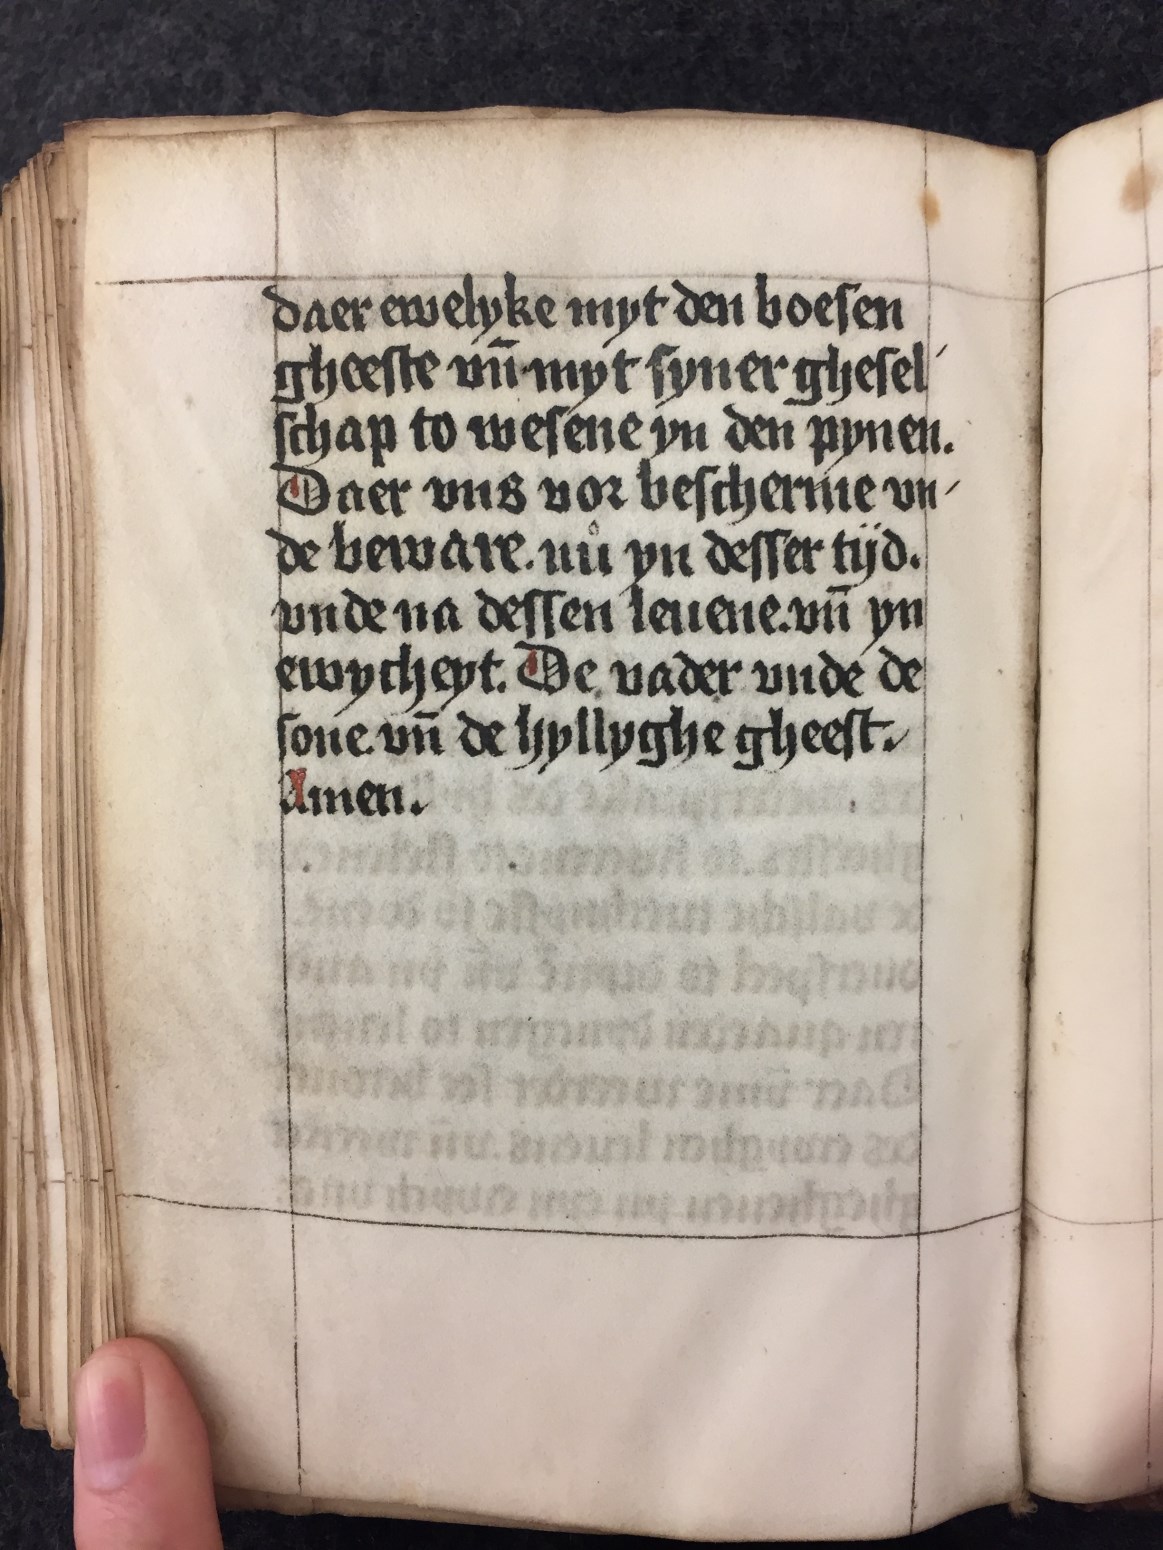 daer ewelyke myt den boesen
gheeste vn̄ myt syner ghesel
schap to wesene yn den pynen.
Daer vns vor bescherme vn-
de beware. nů yn desser tijd.
vnde na dessen leuene. vn̄ yn
ewycheyt. De vader vnde de
sone. vn̄ de hyllyghe gheest.
Amen.